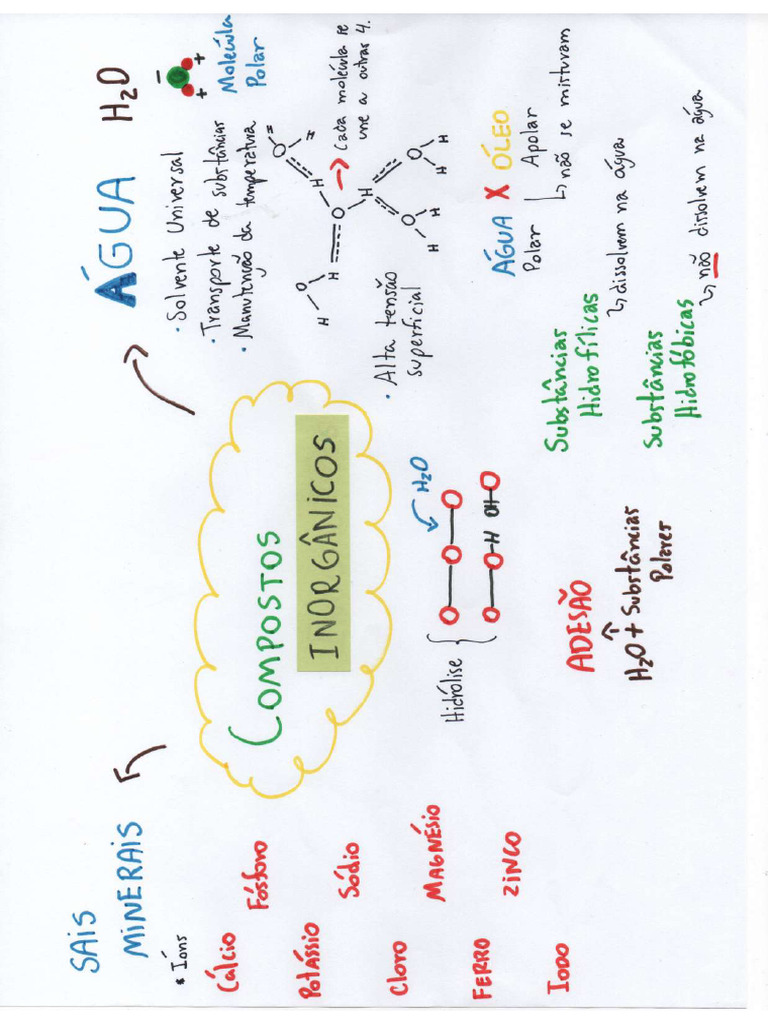 COMPOSTOS
INORGÂNICOS
SAIS
MINERAIS
* Íons
Cálcio
Fósforo
Potássio
Sódio
Cloro
MAGNÉSIO
FERRO
ZINCO
IODO
ÁGUA
H₂O
- + +
Molécula
Polar
• Solvente Universal
• Transporte de substâncias
• Manutenção da temperatura
→ Cada molécula se
une a outras 4.
H O H
H O H
O
H
O H H
O H H
• Alta tensão
superficial
ÁGUA X ÓLEO
Polar Apolar
↳ não se misturam
Substâncias
Hidrofílicas
↳ dissolvem na água
Substâncias
Hidrofóbicas
↳ não dissolvem na água
Hidrólise
H₂O
O—O—O
O—O-H OH-O
ADESÃO
H₂O + Substâncias
Polares